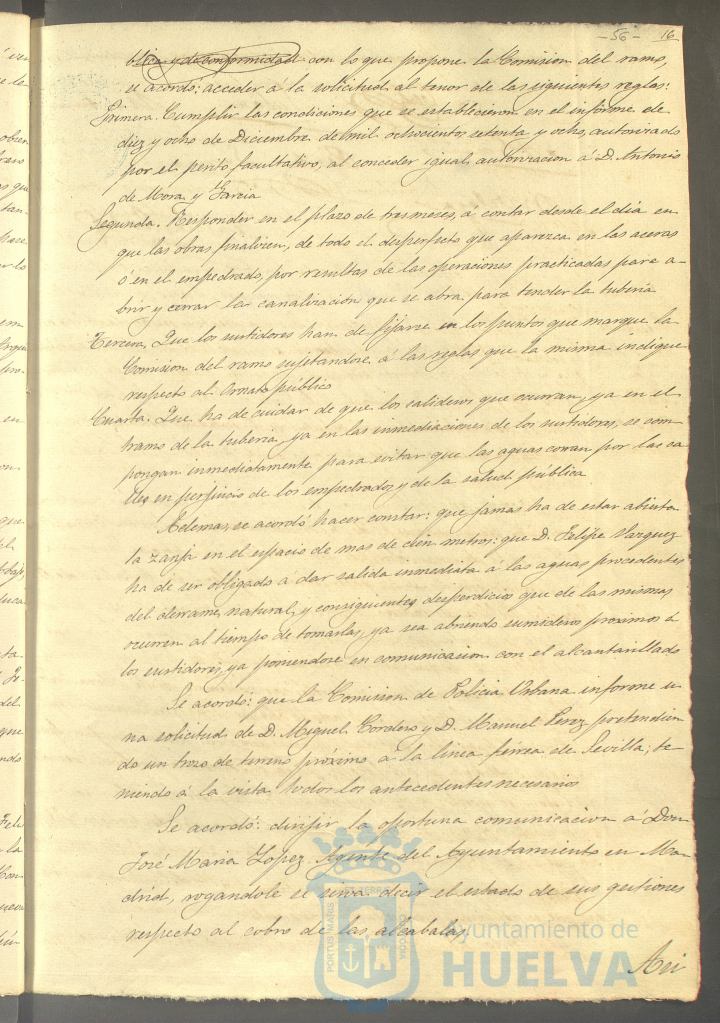 -56- 16
blica y de conformidad con lo que propone la Comision del ramo,
se acordó: acceder á la solicitud al tenor de las siguientes reglas:
Primera. Cumplir las condiciones que se establecieron en el informe de
diez y ocho de Diciembre de mil ochocientos setenta y ocho, autorizado
por el perito facultativo, al conceder igual autorizacion á D. Antonio
de Mora y Garcia
Segunda. Responder en el plazo de tres meses, á contar desde el dia en
que las obras finalizen, de todo el desperfecto que aparezca en las aceras
ó en el empedrado, por resultas de las operaciones practicadas para a-
brir y cerrar la canalizacion que se abra para tender la tuberia
Tercera. Que los surtidores han de fijarse en los puntos que marque la
Comision del ramo sujetandose á las reglas que la misma indique
respecto al Ornato público
Cuarta. Que ha de cuidar de que los salideros que ocurran, ya en el
tramo de la tuberia, ya en las inmediaciones de los surtidores, se com-
pongan inmediatamente para evitar que las aguas corran por las ca-
lles en perjuicio de los empedrados y de la salud pública
Ademas, se acordó hacer constar: que jamas ha de estar abierta
la zanja en el espacio de mas de cien metros: que D. Felipe Vazquez
ha de ser obligado á dar salida inmediata á las aguas procedentes
del derrame natural, y consiguientes desperdicios que de las mismas
ocurren al tiempo de tomarlas, ya sea abriendo sumideros proximos á
los surtidores, ya poniendose en comunicacion con el alcantarillado
Se acordó: que la Comision de Policia Urbana informe u-
na solicitud de D. Miguel Cordero y D. Manuel Perez pretendien-
do un trozo de terreno próximo á la linea ferrea de Sevilla; te-
niendo á la vista todos los antecedentes necesarios
Se acordó: dirijir la oportuna comunicacion á Don
José Maria Lopez, Agente del Ayuntamiento en Ma-
drid, rogandole se sirva decir el estado de sus gestiones
respecto al cobro de las alcabalas,
Ayuntamiento de
HUELVA
PORTUS MARIS ET TERRE CUSTODIA